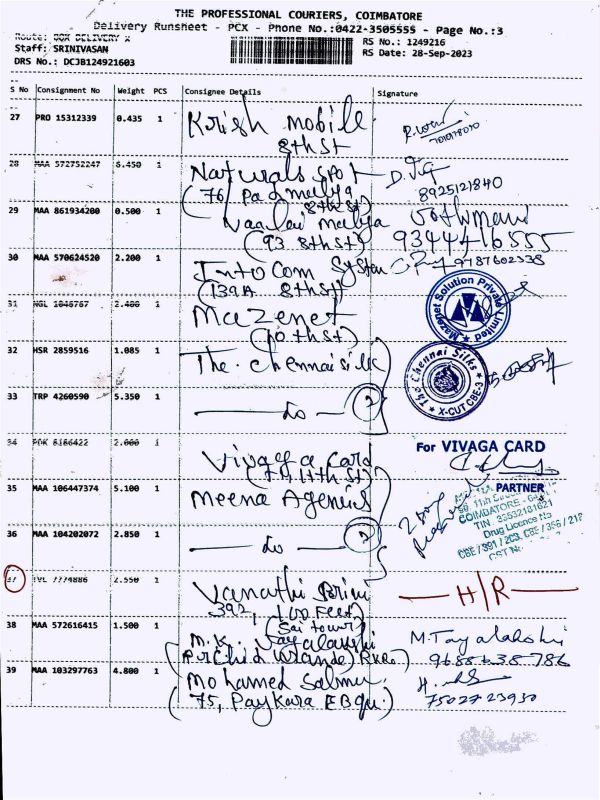 THE PROFESSIONAL COURIERS, COIMBATORE
Delivery Runsheet - PCX - Phone No.:0422-3505555 - Page No.:3
Route: DELIVERY
Staff: SRINIVASAN
DRS No.: DCJB124921603
RS No.: 1249216
RS Date: 28-Sep-2023
S No Consignment No Weight PCS Consignee Details Signature
27 PRO 15312339 0.435 1 Krish mobile
8th St
28 MAA 572752247 6.450 1 Naturals Spot
8925121840
29 MAA 861934200 0.500 1
(93 8th St)
9344416555
30 MAA 570624520 2.200 1 Into Com System
9787602338
(139A 8th St)
31 NGL 1.0 2.400 1 Mazenet
(10th St)
Mazenet Solution Private Limited
32 HSR 2859516 1.085 1 The Chennai Silk
The Chennai Silks
X-CUT CBE-3
33 TRP 4260590 5.350 1 do
34 PDK 6166422 2.000 1 Vivaga Card
11th St)
For VIVAGA CARD
PARTNER
35 MAA 106447374 5.100 1 Meena Agencies
COIMBATORE
TIN 33532181621
Drug Licence No
36 MAA 104202072 2.850 1 do
37 TVL 7774886 2.550 1 Vanathi
392, 100 Feet
H/R
38 MAA 572616415 1.500 1 (Sai tower)
M.K. Jayalakshi
9688638786
39 MAA 103297763 4.800 1 Mohamed
(75, Paykara EB
7502723930